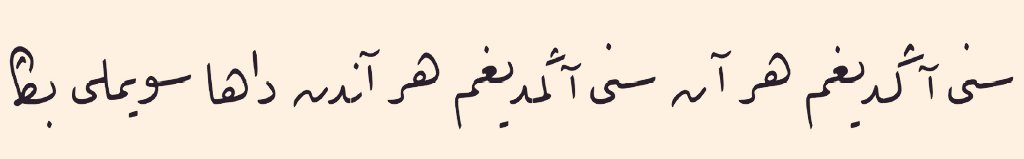 سنی آڭدیغم هر آن سنی آڭمدیغم هر آندن داها سویملی